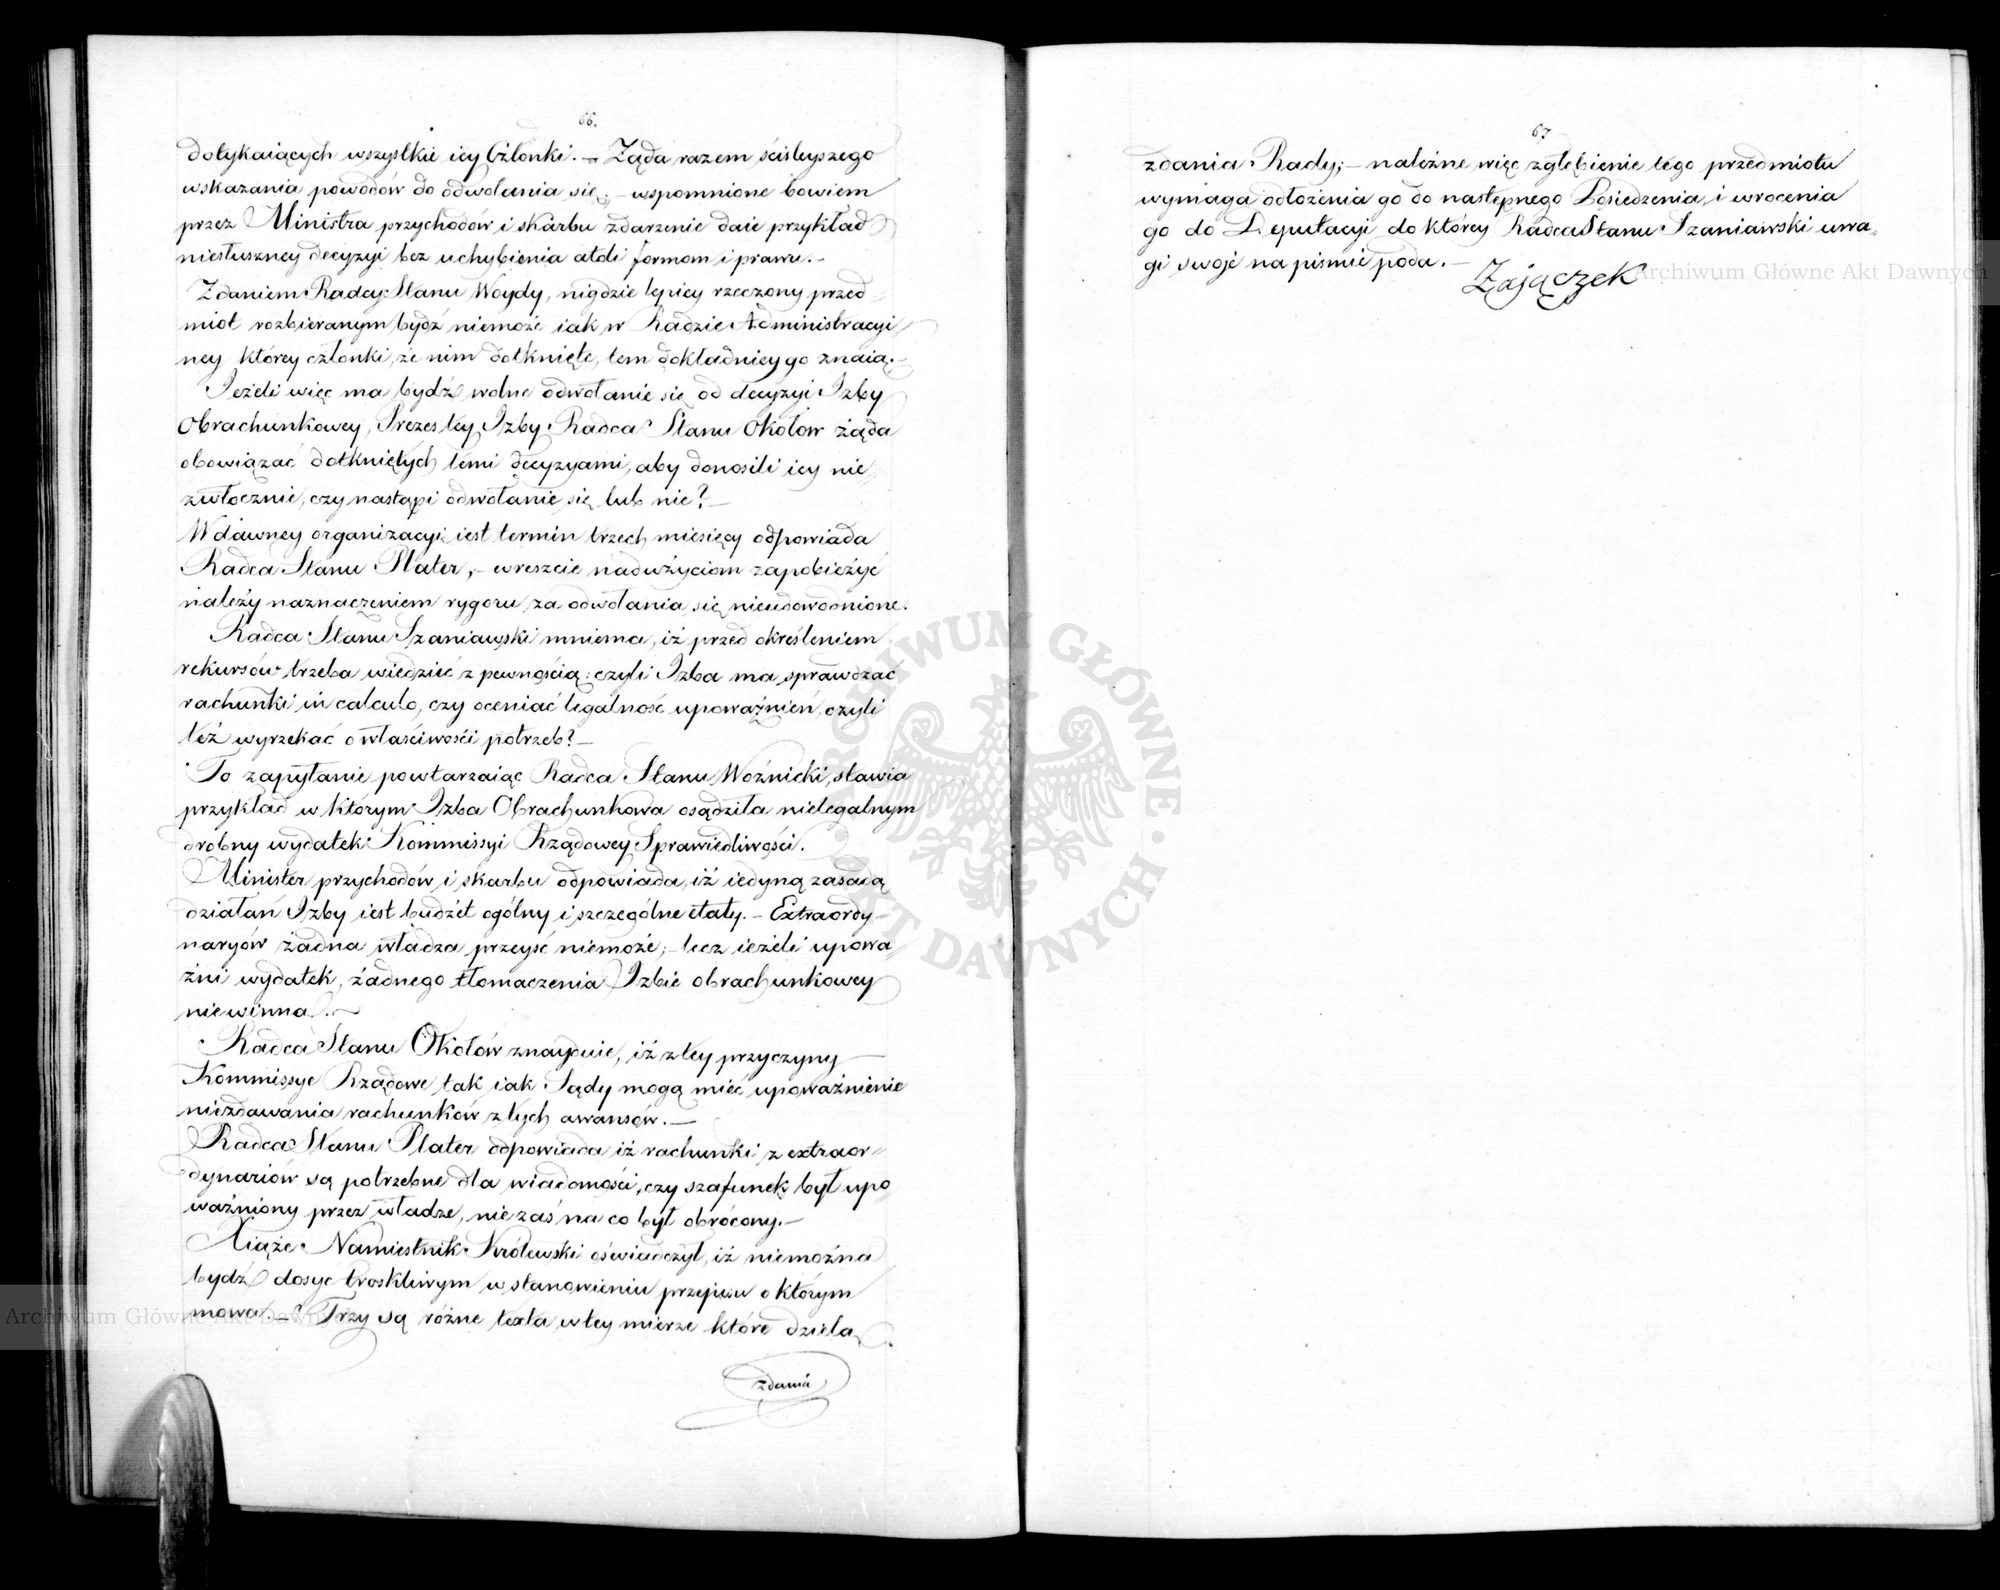 66.
dotykaiących wszystkie iey Członki. – Żąda razem ściśleyszego
wskazania powodów do odwołania się; – wspomnione bowiem
przez Ministra przychodów i skarbu zdarzenie daie przykład
niesłuszney decyzyi bez uchybienia atoli formom i prawu. –
Zdaniem Radcy Stanu Woydy, nigdzie lepiey rzeczony przed-
miot rozbieranym bydź niemoże iak w Radzie Administracyi
ney którey członki, że nim dotknięte, tem dokładniey go znaią. –
Jeżeli więc ma bydź wolne odwołanie się od decyzyi Izby
Obrachunkowey, Prezes tey Izby Radca Stanu Okołow żąda
obowiązać dotkniętych temi decyzyami, aby donosili iey nie
zwłocznie, czy nastąpi odwołanie się lub nie? –
W dawney organizacyi iest termin trzech miesięcy odpowiada
Radca Stanu Plater, – wreszcie nadużyciom zapobieżyć
należy naznaczeniem rygoru za odwołania się nieudowodnione.
Radca Stanu Szaniawski mniema, iż przed określeniem
rekursów trzeba wiedzieć z pewnością: czyli Izba ma sprawdzać
rachunki in calculo, czy oceniać legalność upoważnień, czyli
też wyrzekać o właściwości potrzeb? –
To zapytanie powtarzaiąc Radca Stanu Woźnicki, stawia
przykład w którym Izba Obrachunkowa osądziła nielegalnym
drobny wydatek Kommissyi Rządowey Sprawiedliwości.
Minister przychodów i skarbu odpowiada, iż iedyną zasadą
działań Izby iest budżet ogólny i szczególne etaty. – Extraordy-
naryów żadna władza przeyść niemoże; – lecz ieżeli upowa
żni wydatek, żadnego tłomaczenia Izbie obrachunkowey
niewinna. –
Radca Stanu Okołów znayduie, iż z tey przyczyny –
Kommissye Rządowe tak iak Sądy mogą mieć upoważnienie
niezdawania rachunków z tych awansów. –
Radca Stanu Plater odpowiada iż rachunki z extraor-
dynariów są potrzebne dla wiadomości, czy szafunek był upo
ważniony przez władze, nie zaś na co był obrócony. –
Xiąże Namiestnik Królewski oświadczył, iż niemożna
bydź dosyć troskliwym w stanowieniu przepisu o którym
mowa. – Trzy są różne texta w tey mierze które dzielą
zdania
67
zdania Rady; – należne więc zgłębienie tego przedmiotu
wymaga odłożenia go do następnego Posiedzenia, i wrocenia
go do Deputacyi do którey Radca Stanu Szaniawski uwa-
gi swoje na piśmie poda. –
Zajączek
Archiwum Główne Akt Dawnych
Archiwum Główne Akt Dawnych
ARCHIWUM GŁÓWNE AKT DAWNYCH